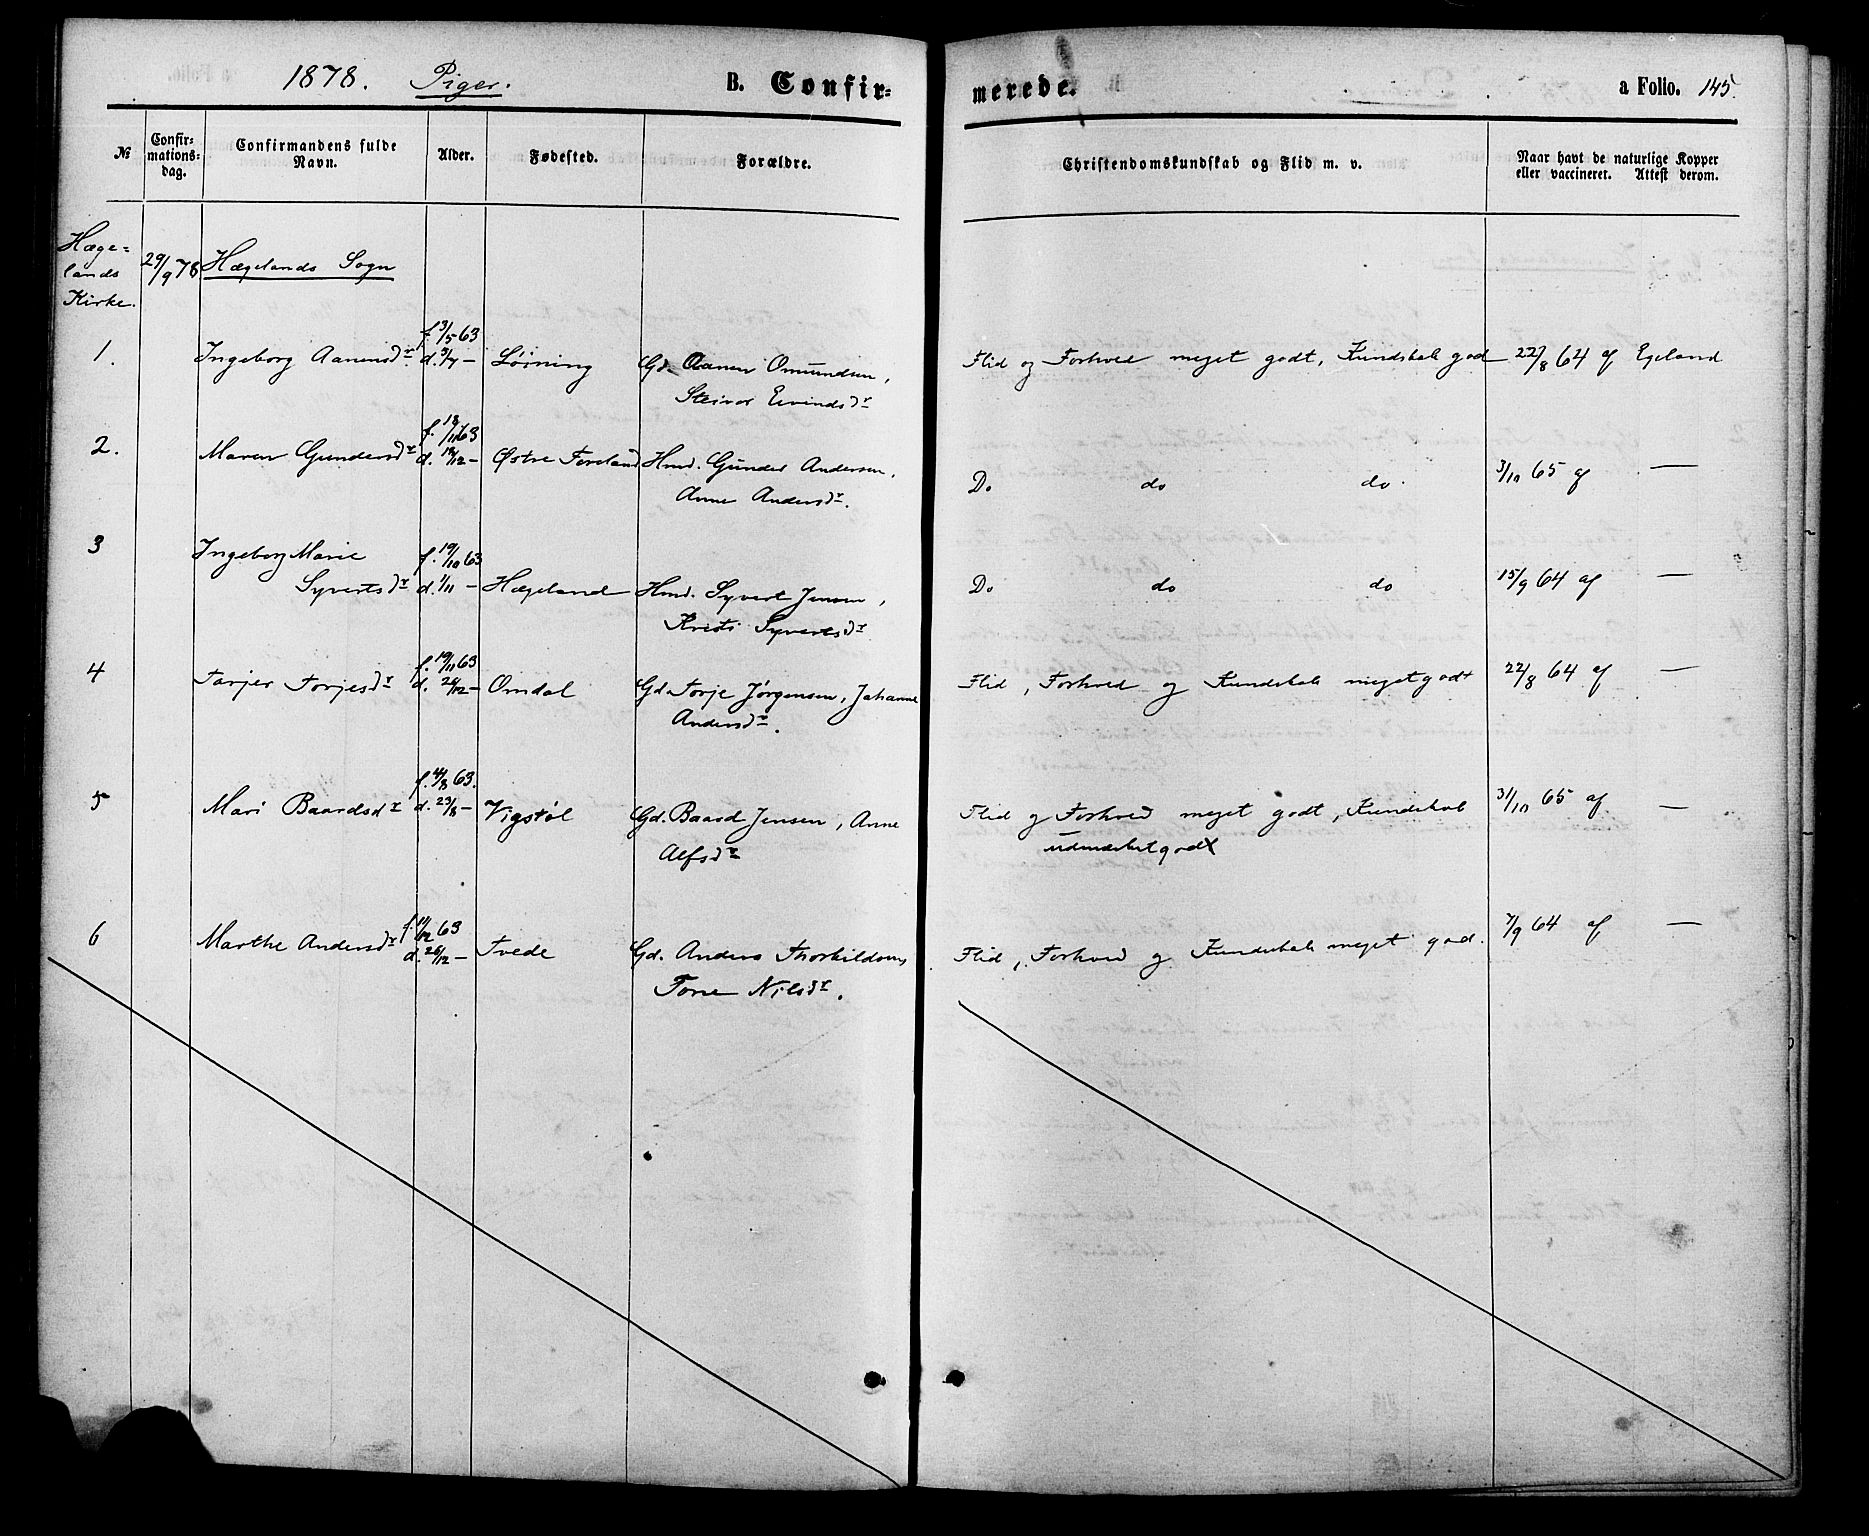 1878. Piger. B. Confir=
merede. a Folio. 145.
№
Confir=
mations=
dag.
Confirmandens fulde
Navn.
Alder.
Fødested.
Forældre.
Christendomskundskab og Flid m. v.
Naar havt de naturlige Kopper
eller vaccineret. Attest derom.
Hæge=
lands
Kirke.
29/9 78
Hægelands Sogn
1. Ingeborg Aanensdr. f. 3/5 63 Løining Gd. Aanen Omundsen, Flid og Forhold meget godt, Kundskab god 22/8 64 af Egeland
d. 5/7 –
Steivor Eivindsdr
2. Maren Gundersdr f. 18/11 63 Østre Foreland Hmd. Gunder Andersen, Do do do. 3/10 65 af —
d. 18/12 –
Anne Andersdr.
3 Ingeborg Marie f. 19/10 63
Syvertsdr d. 1/11 – Hægeland Hmd. Syvert Jensen, Do do do 15/9 64 af —
Kristi Syvertsdr
4 Tarjer Torjesdr f. 19/11 63 Omdal Gd. Torje Jørgensen, Johanne Flid, Forhold og Kundskab meget godt 22/8 64 af —
d. 26/12 –
Andersdr.
5 Mari Baardsdr f. 4/8 63. Vigstøl Gd. Baard Jensen, Anne Flid og Forhold meget godt, Kundskab 31/10 65 af —
d. 23/8 –
Alfsdr
udmærket godt
6 Marthe Andersdr f. 14/12 63 Tvede Gd. Anders Thorkildsens Flid, Forhold og Kundskab meget god. 7/9 64 af —
d. 26/12 –
Tone Nilsdr.